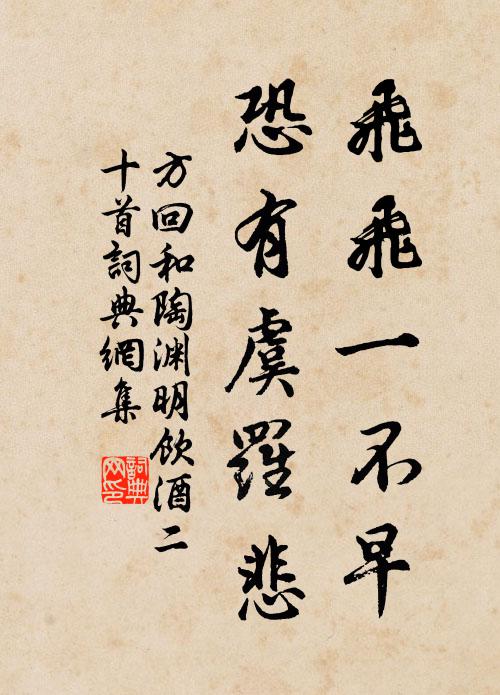 飛飛一不早
恐有虞羅悲
方回和陶渊明飲酒二
十首詞典網集
詞典
网印